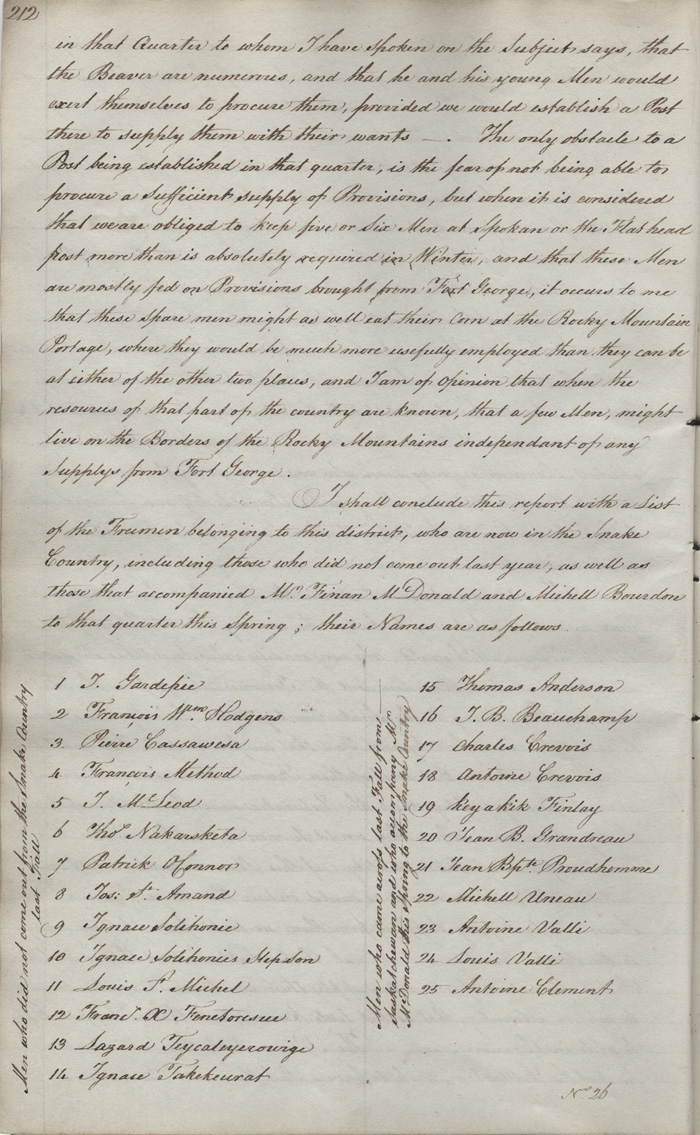 212
in that Quarter to whom I have spoken on the Subject says, that
the Beaver are numerous, and that he and his young Men would
exert themselves to procure them, provided we would establish a Post
there to supply them with their wants —. The only obstacle to a
Post being established in that quarter, is the fear of not being able to
procure a sufficient supply of Provisions, but when it is considered
that we are obliged to keep five or six Men at Spokan or the Flat head
post more than is absolutely required in Winter, and that these Men
are mostly fed on Provisions bought from Fort George, it occurs to me
that these spare men might as well eat their Corn at the Rocky Mountain
Portage, where they would be much more usefully employed than they can be
at either of the other two places, and I am of opinion that when the
resources of that part of the country are known, that a few Men, might
live on the Borders of the Rocky Mountains independant of any
Supplys from Fort George.
I shall conclude this report with a List
of the Freemen belonging to this district, who are now in the Snake
Country, including those who did not come out last year, as well as
those that accompanied Mr. Finan McDonald and Michell Bourdon
to that quarter this Spring; their Names are as follows.
Men who did not come out from the Snake Country
last Fall
1 T. Gardepie
2 François Wm. Hodgens
3 Pierre Cassawesa
4 François Method
5 T. McLeod
6 Thos. Nakarsketa
7 Patrick O'Connor
8 Jos: St. Amand
9 Ignace Solihonie
10 Ignace Solihonies Stepson
11 Louis St. Michel
12 Frans. X Fenetoresue
13 Lazard Teycaleyecowige
14 Ignace Takekeurat
Men who came across last Fall from
Saskatchewan and who accompany Mr.
McDonald this spring to the Snake Country
15 Thomas Anderson
16 J. B. Beauchamp
17 Charles Crevois
18 Antoine Crevois
19 Keyakik Finlay
20 Jean B. Grandreau
21 Jean Bpte. Proudhomme
22 Michell Uneau
23 Antoine Valli
24 Louis Valli
25 Antoine Clement
No 26